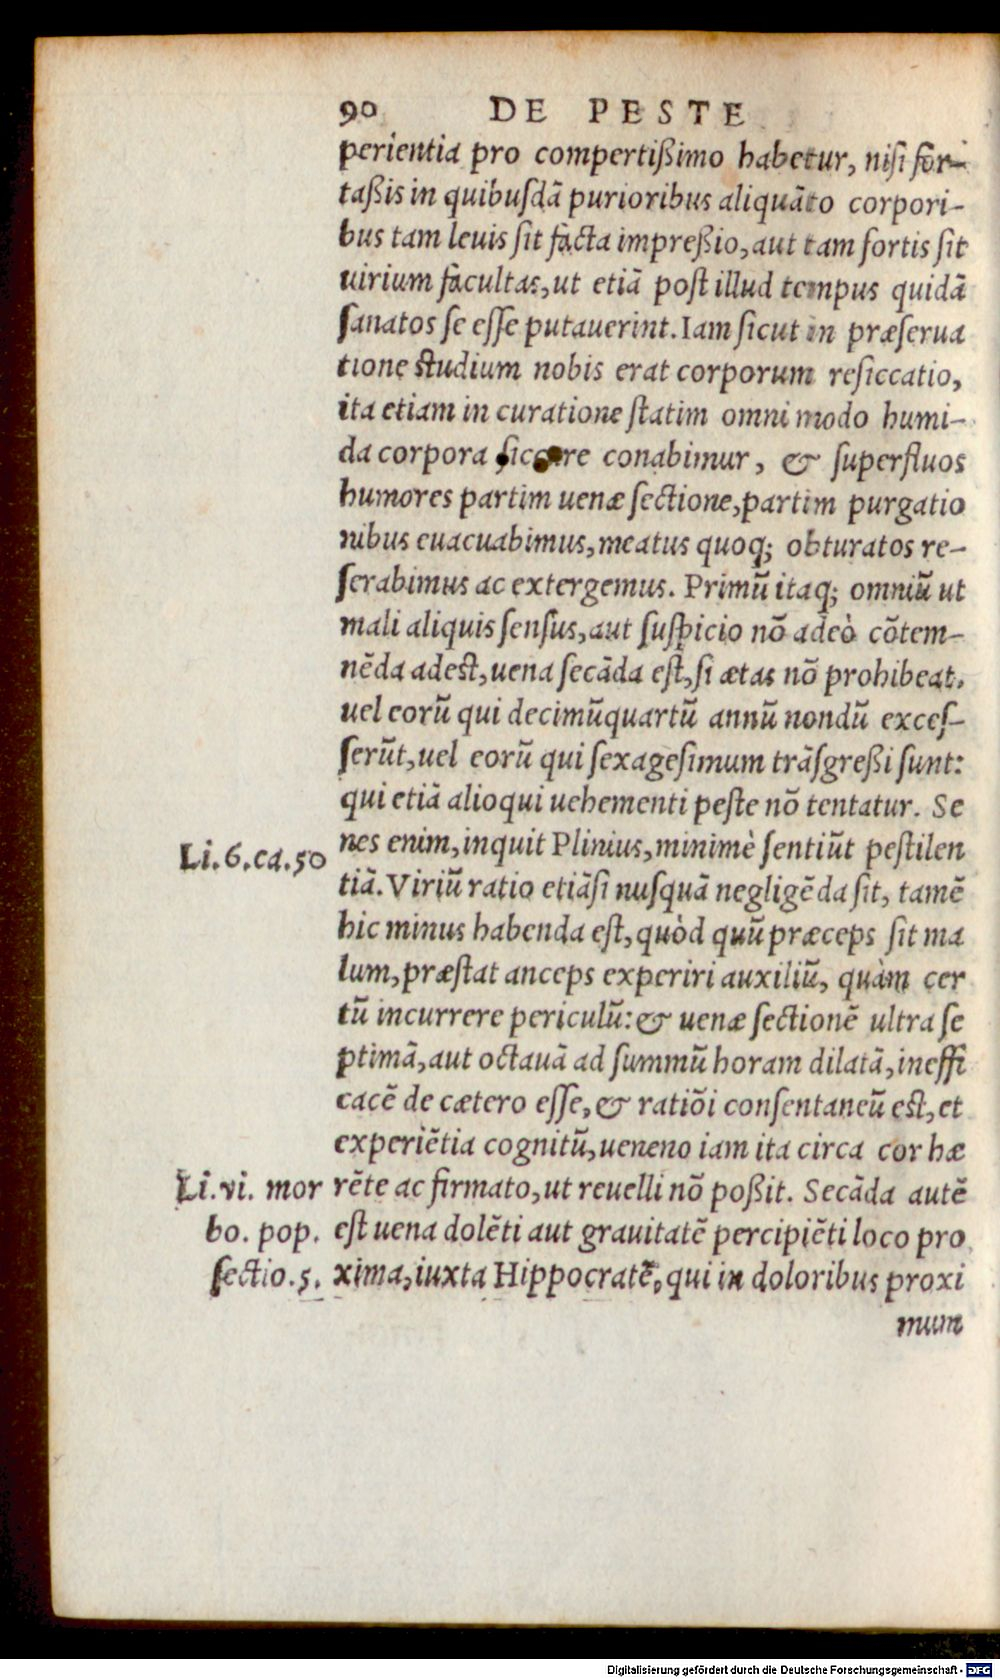 90 DE PESTE
perientia pro compertißimo habetur, niſi for-
taßis in quibuſdã purioribus aliquãto corpori-
bus tam leuis ſit facta impreßio, aut tam fortis ſit
uirium facultas, ut etiã poſt illud tempus quidã
ſanatos ſe eſſe putauerint. Iam ſicut in præſerua
tione ſtudium nobis erat corporum reſiccatio,
ita etiam in curatione ſtatim omni modo humi-
da corpora ſiccare conabimur, & ſuperfluos
humores partim uenæ ſectione, partim purgatio
nibus euacuabimus, meatus quoq; obturatos re-
ſerabimus ac extergemus. Primũ itaq; omniũ ut
mali aliquis ſenſus, aut ſuſpicio nõ adeò cõtem-
nẽda adeſt, uena ſecãda eſt, ſi ætas nõ prohibeat,
uel eorũ qui decimũquartũ annũ nondũ exceſ-
ſerũt, uel eorũ qui ſexageſimum trãſgreßi ſunt:
qui etiã alioqui uehementi peſte nõ tentatur. Se
nes enim, inquit Plinius, minimè ſentiũt peſtilen
Li. 6. ca. 50
tiã. Viriũ ratio etiãſi nuſquã negligẽda ſit, tamẽ
hic minus habenda eſt, quòd quũ præceps ſit ma
lum, præſtat anceps experiri auxiliũ, quàm cer
tũ incurrere periculũ: & uenæ ſectionẽ ultra ſe
ptimã, aut octauã ad ſummũ horam dilatã, ineffi
cacẽ de cætero eſſe, & ratiõi conſentaneũ eſt, et
experiẽtia cognitũ, ueneno iam ita circa cor hæ
rẽte ac firmato, ut reuelli nõ poßit. Secãda autẽ
eſt uena dolẽti aut grauitatẽ percipiẽti loco pro
xima, iuxta Hippocratẽ, qui in doloribus proxi
Li. vi. mor
bo. pop.
ſectio. 5.
mum
Digitalisierung gefördert durch die Deutsche Forschungsgemeinschaft - DFG